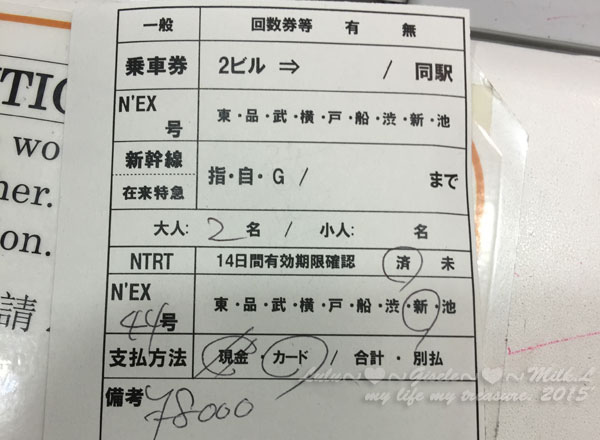 一般 回数券等 有 無
乗車券 2ビル ⇒ / 同駅
N'EX 号 東・品・武・横・戸・船・渋・新・池
新幹線 在来特急 指・自・G / まで
大人: 2 名 / 小人: 名
NTRT 14日間有効期限確認 済 未
N'EX 44号 東・品・武・横・戸・船・渋・新・池
支払方法 現金・カード / 合計・別払
備考 78000
TIC
wo
her.
on.
請
my life my treasure. 2015